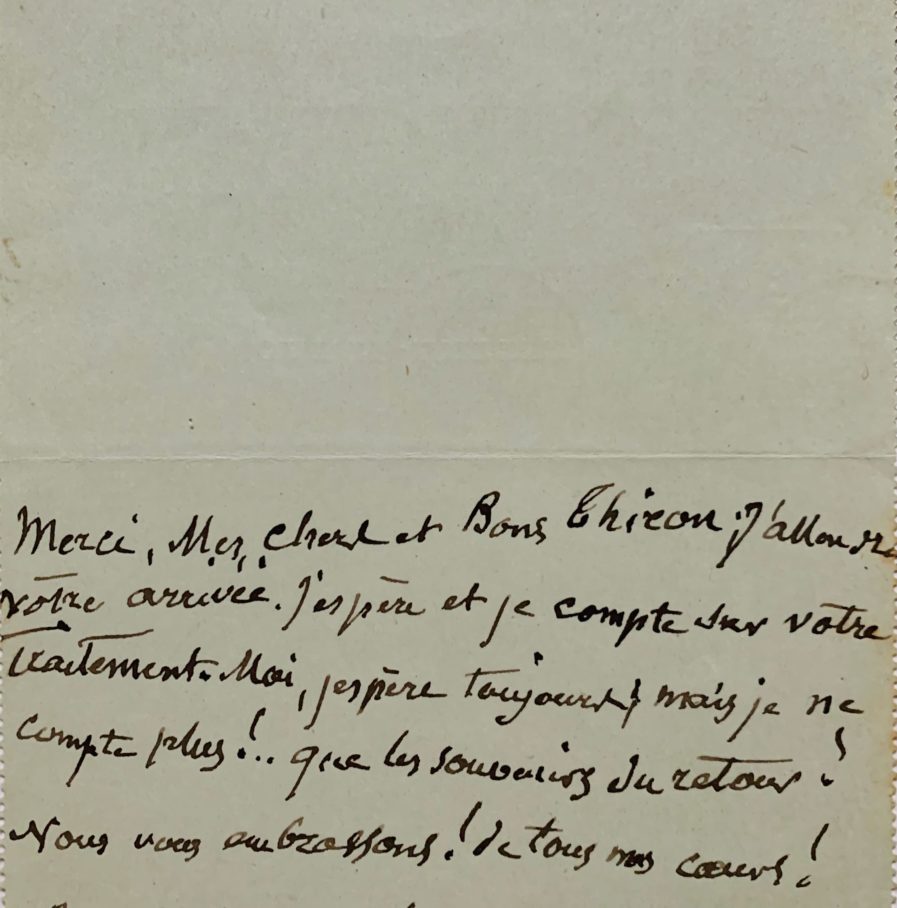 Merci, Mes chers et Bons Thiron; J'attendrai
votre arrivée. J'espère et je compte sur votre
traitement. Moi, j'espère toujours; mais je ne
compte plus!.. que les souvenirs du retour!
Nous vous embrassons! de tous nos cœurs!